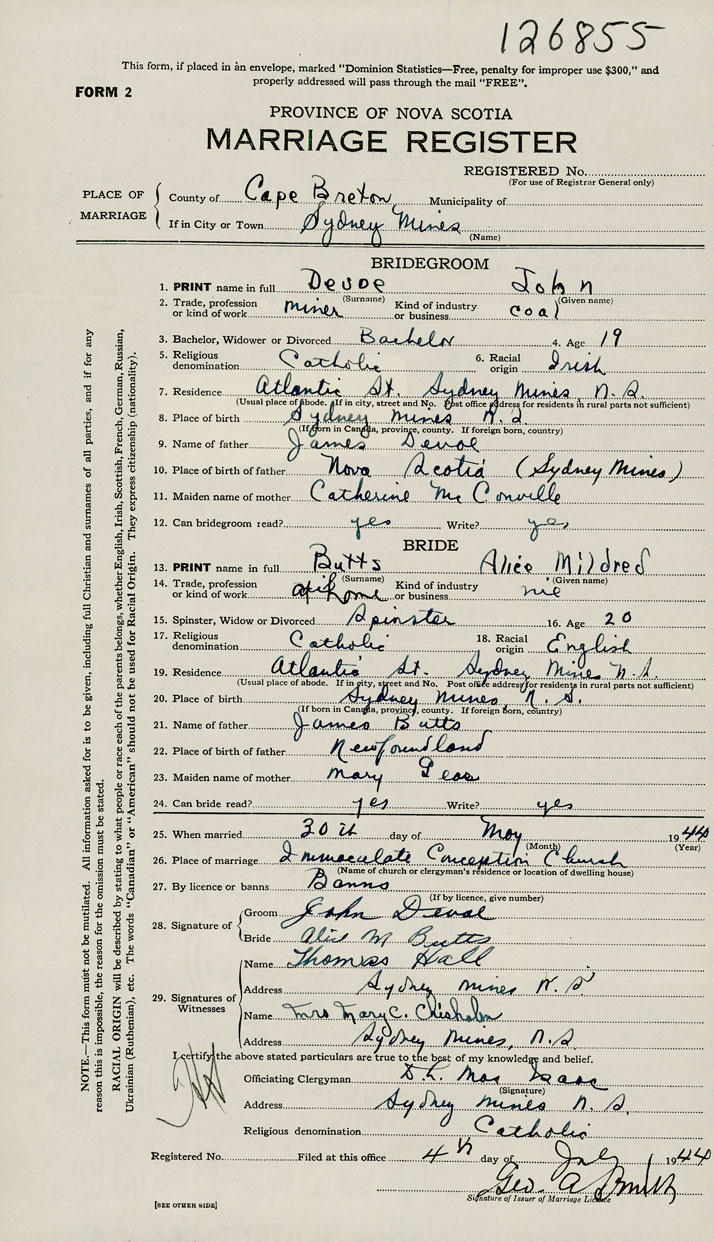 126855
This form, if placed in an envelope, marked "Dominion Statistics—Free, penalty for improper use $300," and
properly addressed will pass through the mail "FREE".
FORM 2
PROVINCE OF NOVA SCOTIA
MARRIAGE REGISTER
REGISTERED No.
(For use of Registrar General only)
PLACE OF MARRIAGE
County of Cape Breton Municipality of
If in City or Town Sydney Mines
(Name)
BRIDEGROOM
1. PRINT name in full Devoe John
(Surname) (Given name)
2. Trade, profession or kind of work miner Kind of industry or business coal
3. Bachelor, Widower or Divorced Bachelor 4. Age 19
5. Religious denomination Catholic 6. Racial origin Irish
7. Residence Atlantic St. Sydney Mines N.S.
(Usual place of abode. If in city, street and No. Post office address for residents in rural parts not sufficient)
8. Place of birth Sydney Mines N.S
(If born in Canada, province, county. If foreign born, country)
9. Name of father James Devoe
10. Place of birth of father Nova Scotia (Sydney Mines)
11. Maiden name of mother Catherine Mc Conville
12. Can bridegroom read? yes Write? yes
BRIDE
13. PRINT name in full Butts Alice Mildred
(Surname) (Given name)
14. Trade, profession or kind of work at home Kind of industry or business
15. Spinster, Widow or Divorced Spinster 16. Age 20
17. Religious denomination Catholic 18. Racial origin English
19. Residence Atlantic St. Sydney Mines N.S.
(Usual place of abode. If in city, street and No. Post office address for residents in rural parts not sufficient)
20. Place of birth Sydney Mines, N.S.
(If born in Canada, province, county. If foreign born, country)
21. Name of father James Butts
22. Place of birth of father Newfoundland
23. Maiden name of mother Mary
24. Can bride read? yes Write? yes
25. When married 30th day of May 1944
(Month) (Year)
26. Place of marriage Immaculate Conception Church
(Name of church or clergyman's residence or location of dwelling house)
27. By licence or banns Banns
(If by licence, give number)
28. Signature of
Groom John Devoe
Bride Alice M Butts
29. Signatures of Witnesses
Name Thomas Hall
Address Sydney Mines N.S
Name Mrs Mary C. Chisholm
Address Sydney Mines, N.S.
I certify the above stated particulars are true to the best of my knowledge and belief.
Officiating Clergyman D.L. Mac Isaac
(Signature)
Address Sydney Mines N.S.
Religious denomination Catholic
Registered No. Filed at this office 4th day of July 1944
Geo. A Smith
Signature of Issuer of Marriage Licence
[SEE OTHER SIDE]
NOTE.—This form must not be mutilated. All information asked for is to be given, including full Christian and surnames of all parties, and if for any
reason this is impossible, the reason for the omission must be stated.
RACIAL ORIGIN will be described by stating to what people or race each of the parents belongs, whether English, Irish, Scottish, French, German, Russian,
Ukrainian (Ruthenian), etc. The words "Canadian" or "American" should not be used for Racial Origin. They express citizenship (nationality).